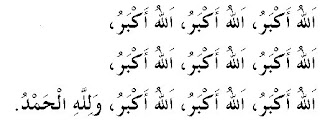 اَللهُ أَكْبَرُ، اَللهُ أَكْبَرُ، اَللهُ أَكْبَرُ،
اَللهُ أَكْبَرُ، اَللهُ أَكْبَرُ، اَللهُ أَكْبَرُ،
اَللهُ أَكْبَرُ، اَللهُ أَكْبَرُ، اَللهُ أَكْبَرُ، وَلِلَّهِ الْحَمْدُ.